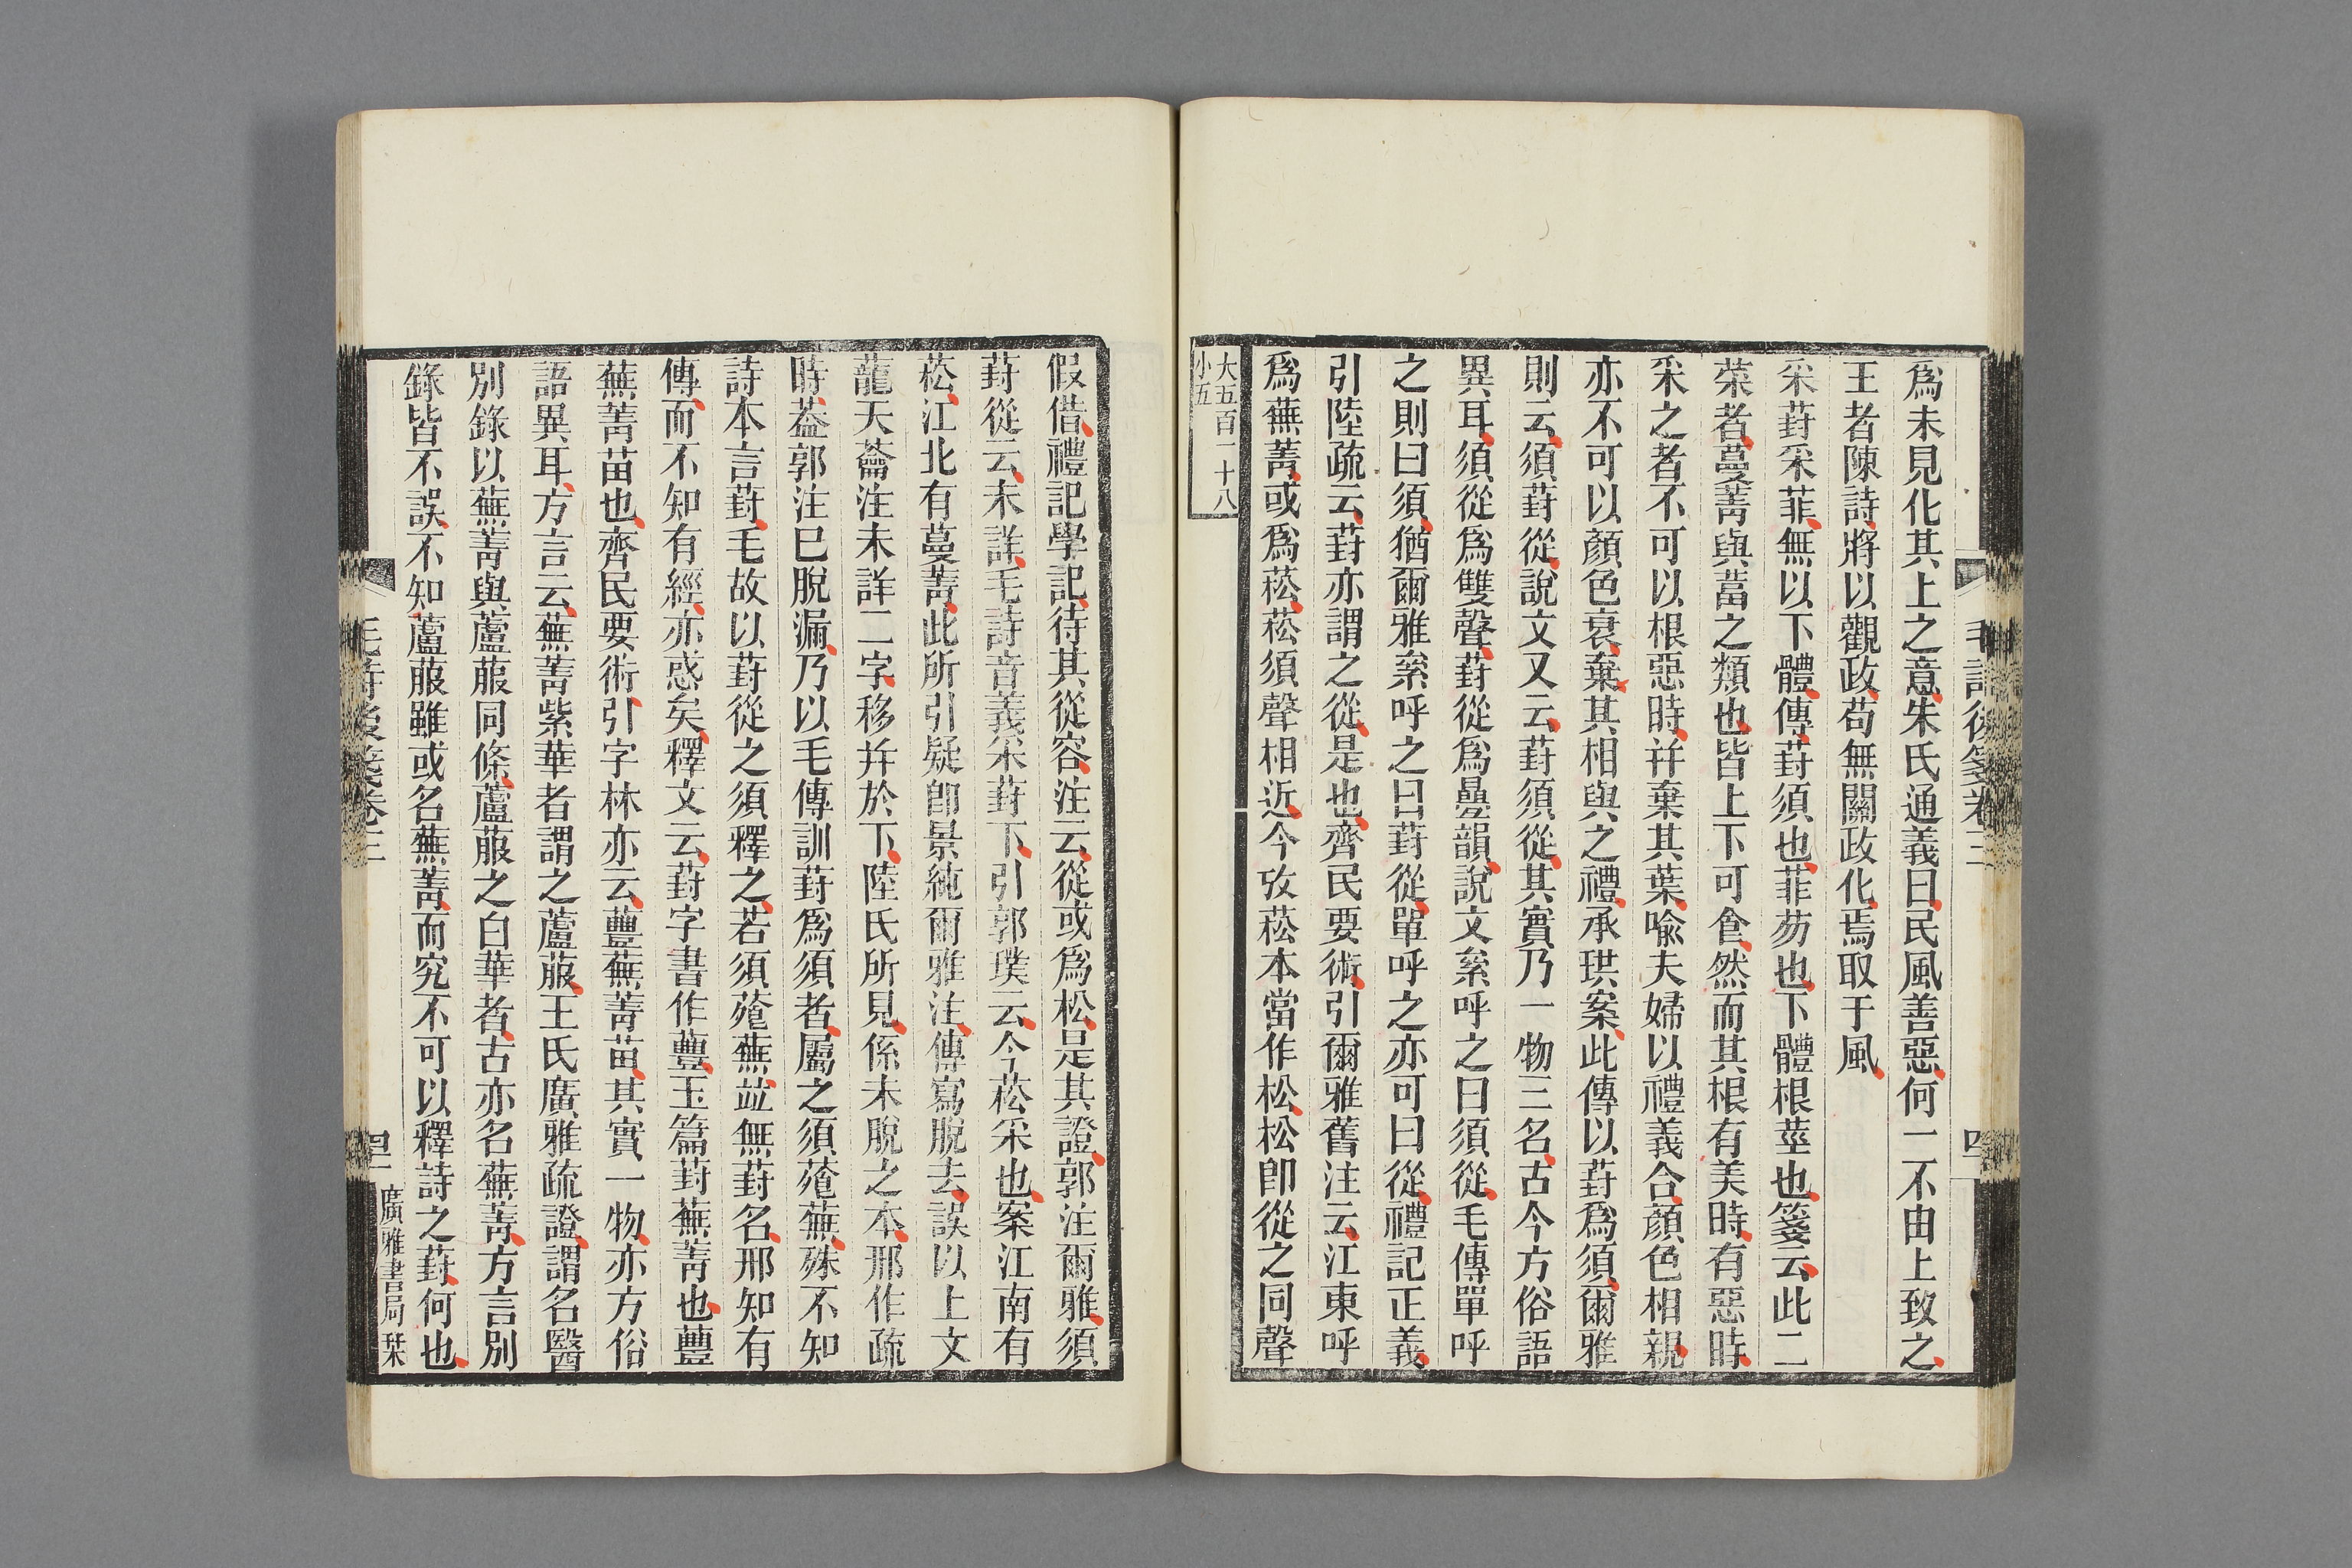 爲未見化其上之意朱氏通義曰民風善惡何一不由上致之
王者陳詩將以觀政苟無關政化焉取于風
采葑采菲無以下體傳葑須也菲芴也下體根莖也箋云此二
菜者蔓菁與葍之類也皆上下可食然而其根有美時有惡時
采之者不可以根惡時幷棄其葉喻夫婦以禮義合顏色相親
亦不可以顏色衰棄其相與之禮承珙案此傳以葑爲須爾雅
則云須葑從說文又云葑須從其實乃一物三名古今方俗語
異耳須從爲雙聲葑從爲疊韻說文絫呼之曰須從毛傳單呼
之則曰須猶爾雅絫呼之曰葑從單呼之亦可曰從禮記正義
引陸疏云葑亦謂之從是也齊民要術引爾雅舊注云江東呼
爲蕪菁或爲菘菘須聲相近今攷菘本當作松松卽從之同聲
大五百一十八
小五
毛詩後箋卷三
四
假借禮記學記待其從容注云從或爲松是其證郭注爾雅須
葑從云未詳毛詩音義采葑下引郭璞云今菘采也案江南有
菘江北有蔓菁此所引疑卽景純爾雅注傳寫脫去誤以上文
蘢天蘥注未詳二字移幷於下陸氏所見係未脫之本邢作疏
時葢郭注已脫漏乃以毛傳訓葑爲須者屬之須薞蕪殊不知
詩本言葑毛故以葑從之須釋之若須薞蕪並無葑名邢知有
傳而不知有經亦惑矣釋文云葑字書作蘴玉篇葑蕪菁也蘴
蕪菁苗也齊民要術引字林亦云蘴蕪菁苗其實一物亦方俗
語異耳方言云蕪菁紫華者謂之蘆菔王氏廣雅疏證謂名醫
別錄以蕪菁與蘆菔同條蘆菔之白華者古亦名蕪菁方言別
錄皆不誤不知蘆菔雖或名蕪菁而究不可以釋詩之葑何也
毛詩後箋卷三
四
廣雅書局栞